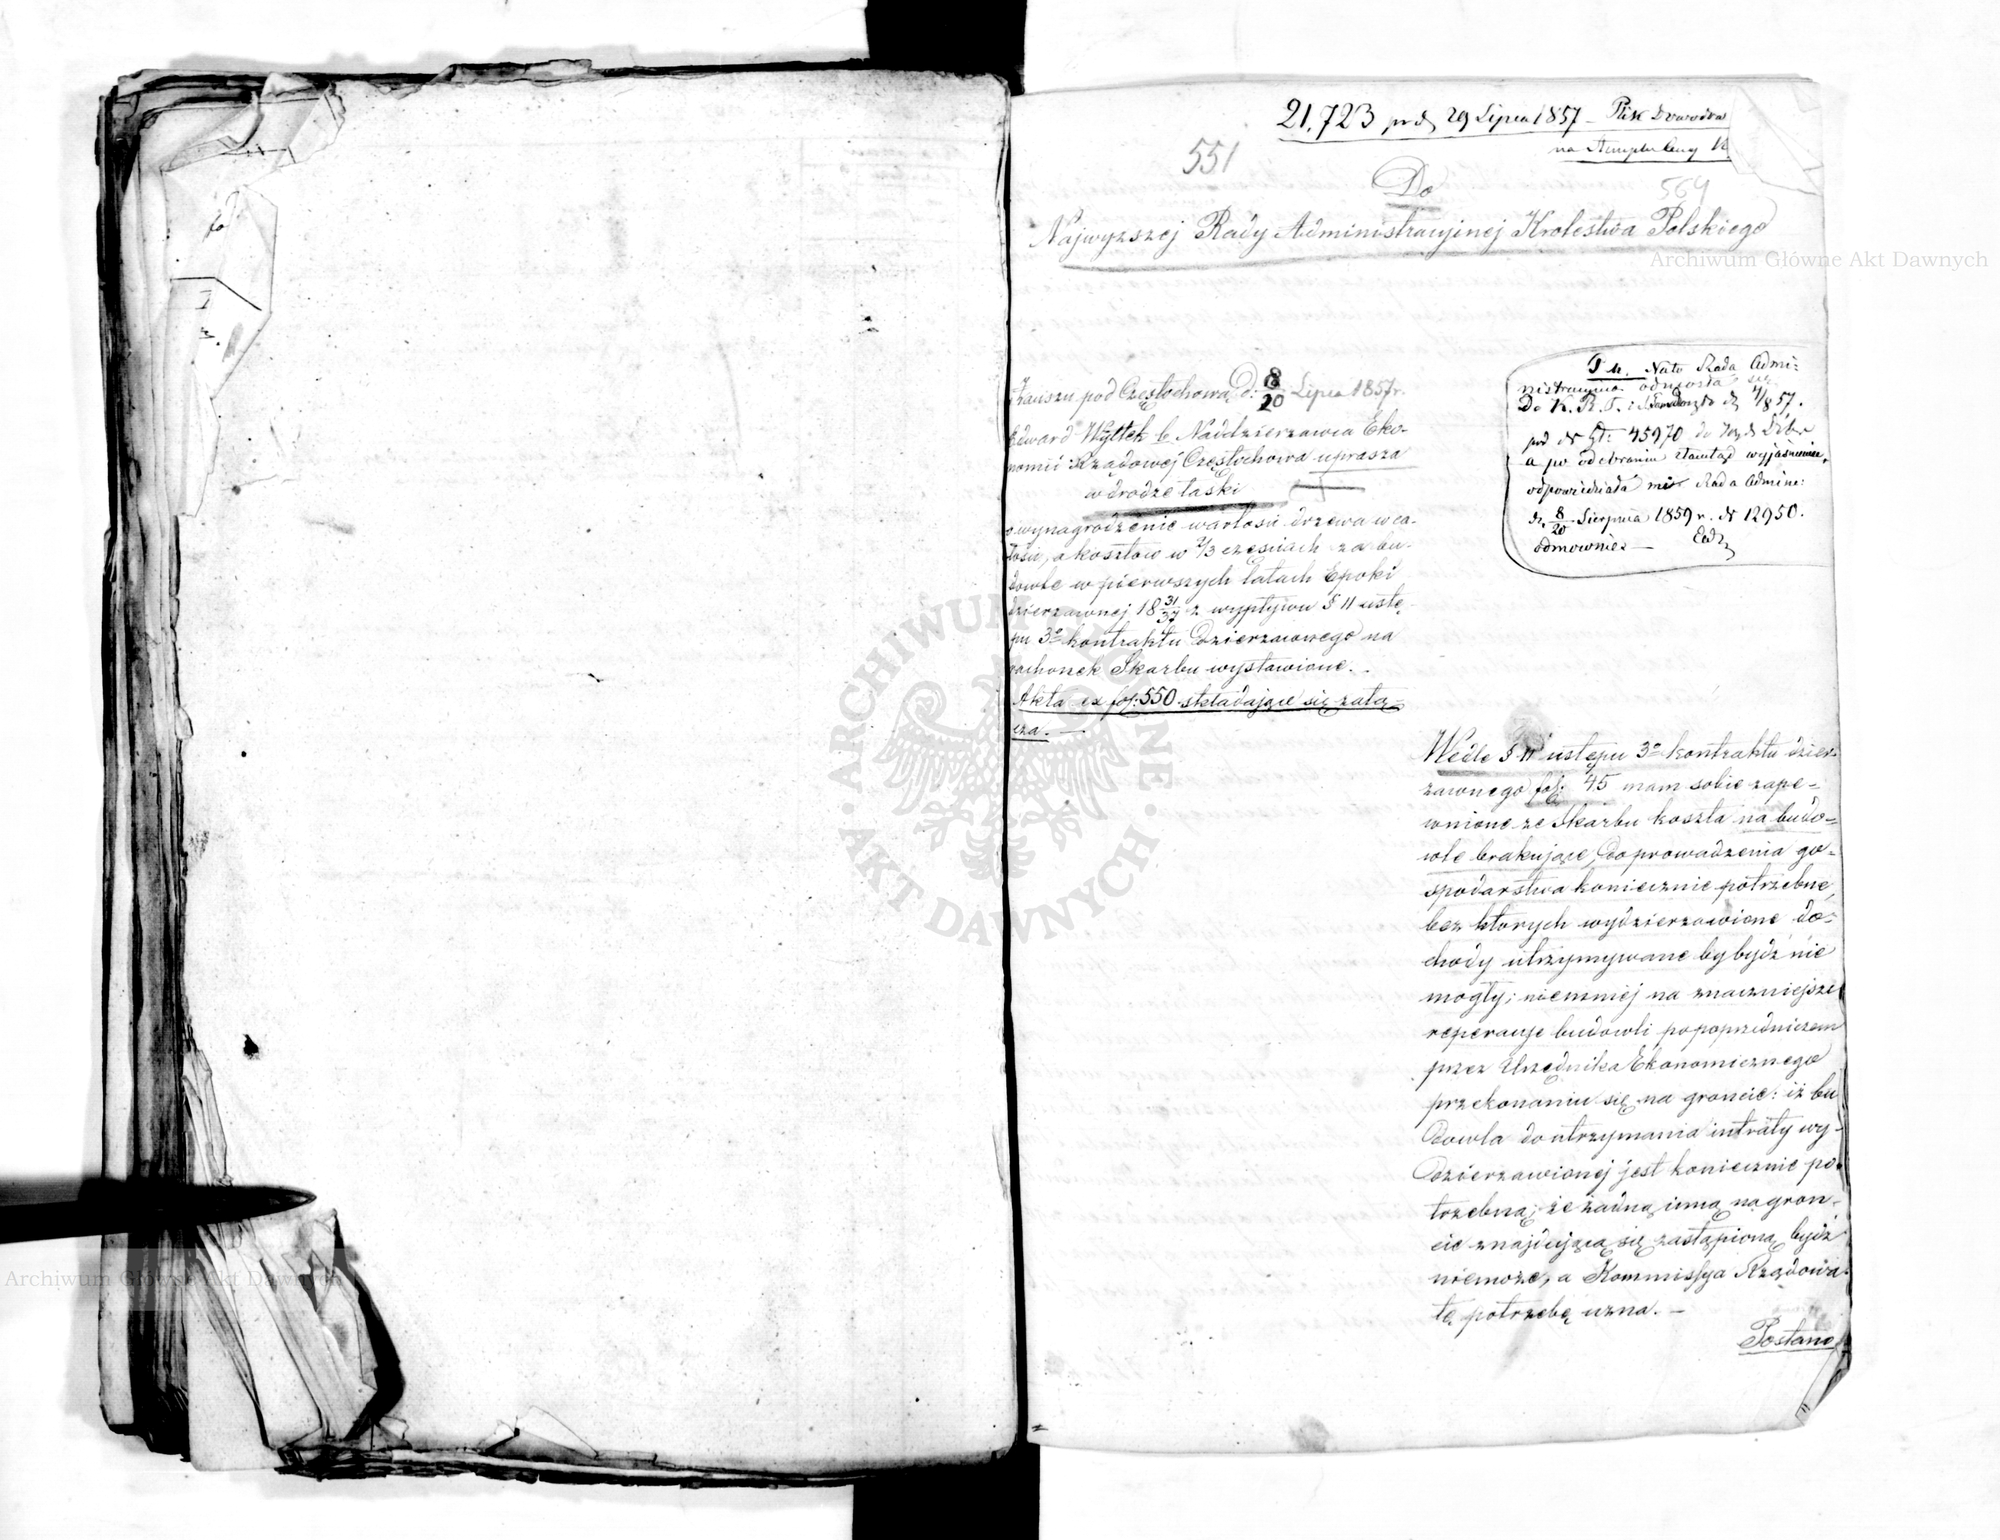 21,723 prd 29 Lipca 1857 – Plik Dowodów
na
551
Do
569
Najwyzszej Rady Administracyinej Krolestwa Polskiego
pod Częstochową D: 8/20 Lipca 1857 r.
Edward Wyttek b. Naddzierzawca Eko-
nomii Rządowej Częstochowa uprasza
w drodze łaski
o wynagrodzenie wartosci drzewa w ca-
łosci, a kosztow w 2/3 częsciach za bu-
dowle w pierwszych latach Epoki
dzierzawnej 18 31/37 z wypływu § 11 ustę-
pu 3º kontraktu dzierzawnego na
rachunek Skarbu wystawione.
Akta ex fol: 550 składające się załą-
cza. —
Nato Rada Admi-
nistracyina odniosła się
Do K. R. P. i Skarbu d 4/8 57.
pod Nr 45970
a po odebraniu ztamtąd wyjaśnienia,
odpowiedziała mi Rada Admini:
d. 8/20 Sierpnia 1859 r. Nr 12950.
odmownie —
Wedle § 11 ustępu 3º kontraktu dzier-
zawnego fol: 45 mam sobie zape-
wnione ze Skarbu koszta na budo-
wle brakujące, do prowadzenia go-
spodarstwa koniecznie potrzebne,
bez ktorych wydzierzawione do-
chody utrzymywane by bydź nie
mogły; niemniej na znaczniejsze
reperacye budowli po poprzedniczem
przez Urzędnika Ekonomicznego
przekonaniu się na groncie: iż bu
dowla do utrzymania intraty wy-
dzierzawionej jest koniecznie po-
trzebną; że żadną inną na gron-
cie znajdującą się zastąpioną bydź
niemoże, a Kommissya Rządowa
tę potrzebę uzna. —
Postano
Archiwum Główne Akt Dawnych
Archiwum Główne Akt Dawnych
ARCHIWUM GŁÓWNE · AKT DAWNYCH ·